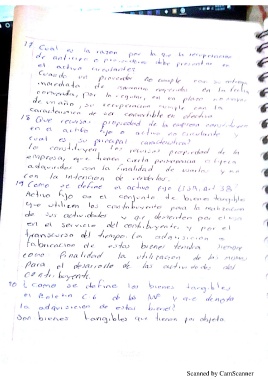 17 Cual es la razon por la que la recuperacion
de anticipo a proveedores debe presentarse en
el activo circulante?
Cuando un proveedor no cumple con su entrega
inmediata de
convenida, por lo regular, en un plazo no mayor
de un año, su recuperacion cumple con la
caracteristica de ser convertible en efectivo.
18 ¿Que recursos propiedad de la empresa
en el activo fijo o activo no circulante y
cual es su principal caracteristica?
Lo constituyen los recursos propiedad de la
empresa, que tienen cierta permanencia o fijeza
adquiridos con la finalidad de usarlos y no
con la intencion de venderlos.
19 Como se define el activo fijo (ISR, Art 38)
Activo fijo es el conjunto de bienes tangibles
que utilicen los contribuyentes para la realizacion
de sus actividades y que demeriten por el uso
en el servicio del contribuyente y por el
transcurso del tiempo. La adquisicion o
fabricacion de estos bienes tendra siempre
como finalidad la utilizacion de los mismos
para el desarrollo de las actividades del
contribuyente.
¿Como se define los bienes tangibles
el Boletin C6 de las NIF y que denota
la adquisicion de estos bienes?
Son bienes tangibles que tienen por objeto
Scanned by CamScanner